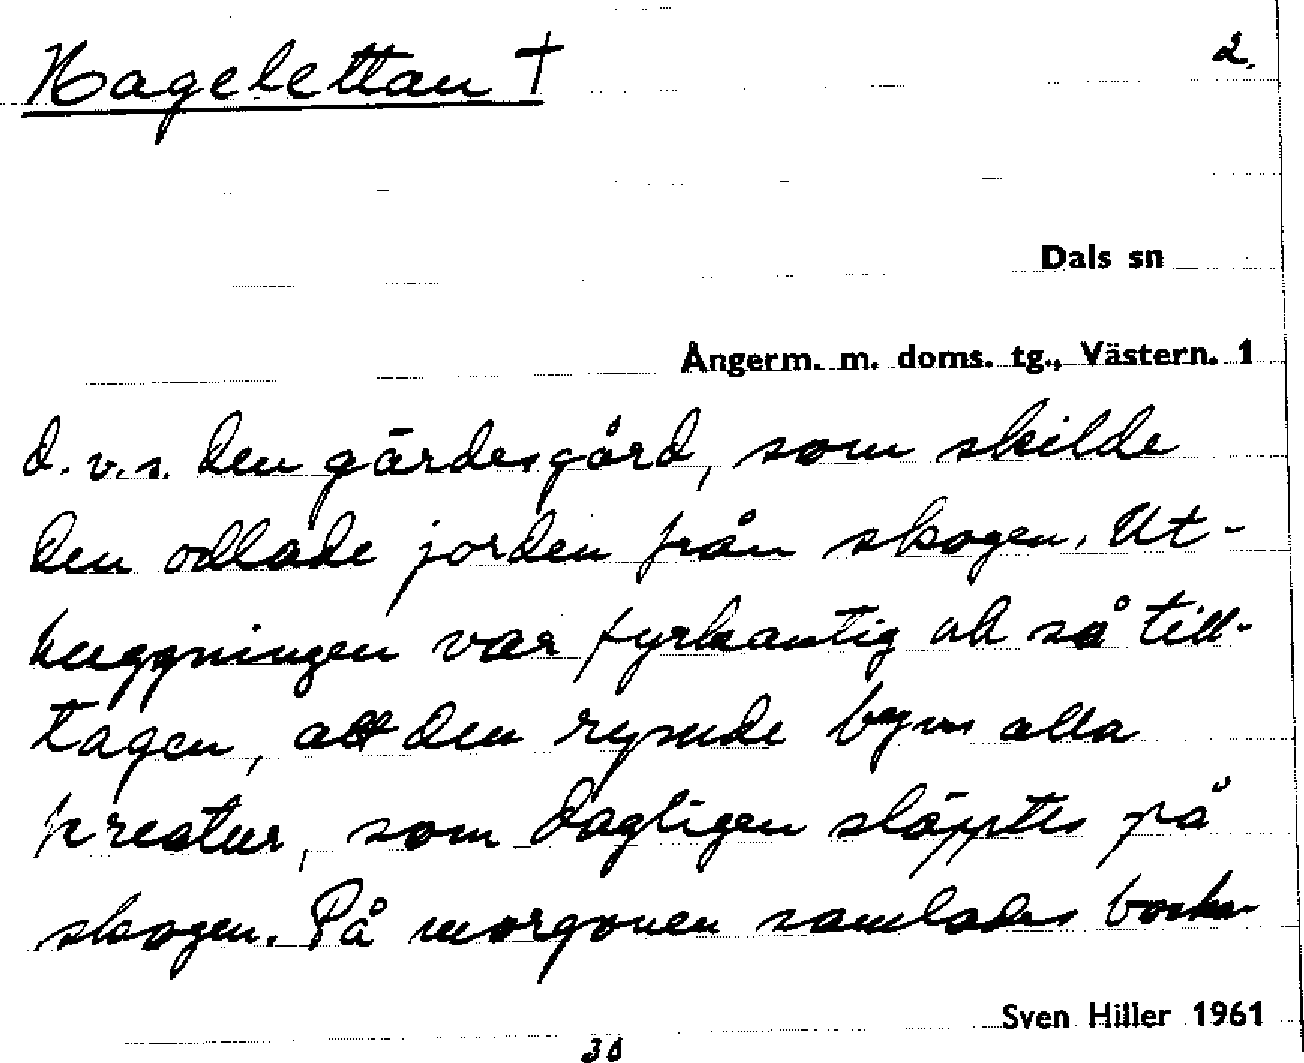 Hagelettan † 2.
Dals sn
Ångerm. m. doms. tg., Västern. 1
d.v.s. den gärdesgård, som skilde
den odlade jorden från skogen. Ut-
buggningen var fyrkantig ock så till-
tagen, att den rymde byns alla
kreatur, som dagligen släpptes på
skogen. På morgonen samlades boska-
Sven Hiller 1961
30